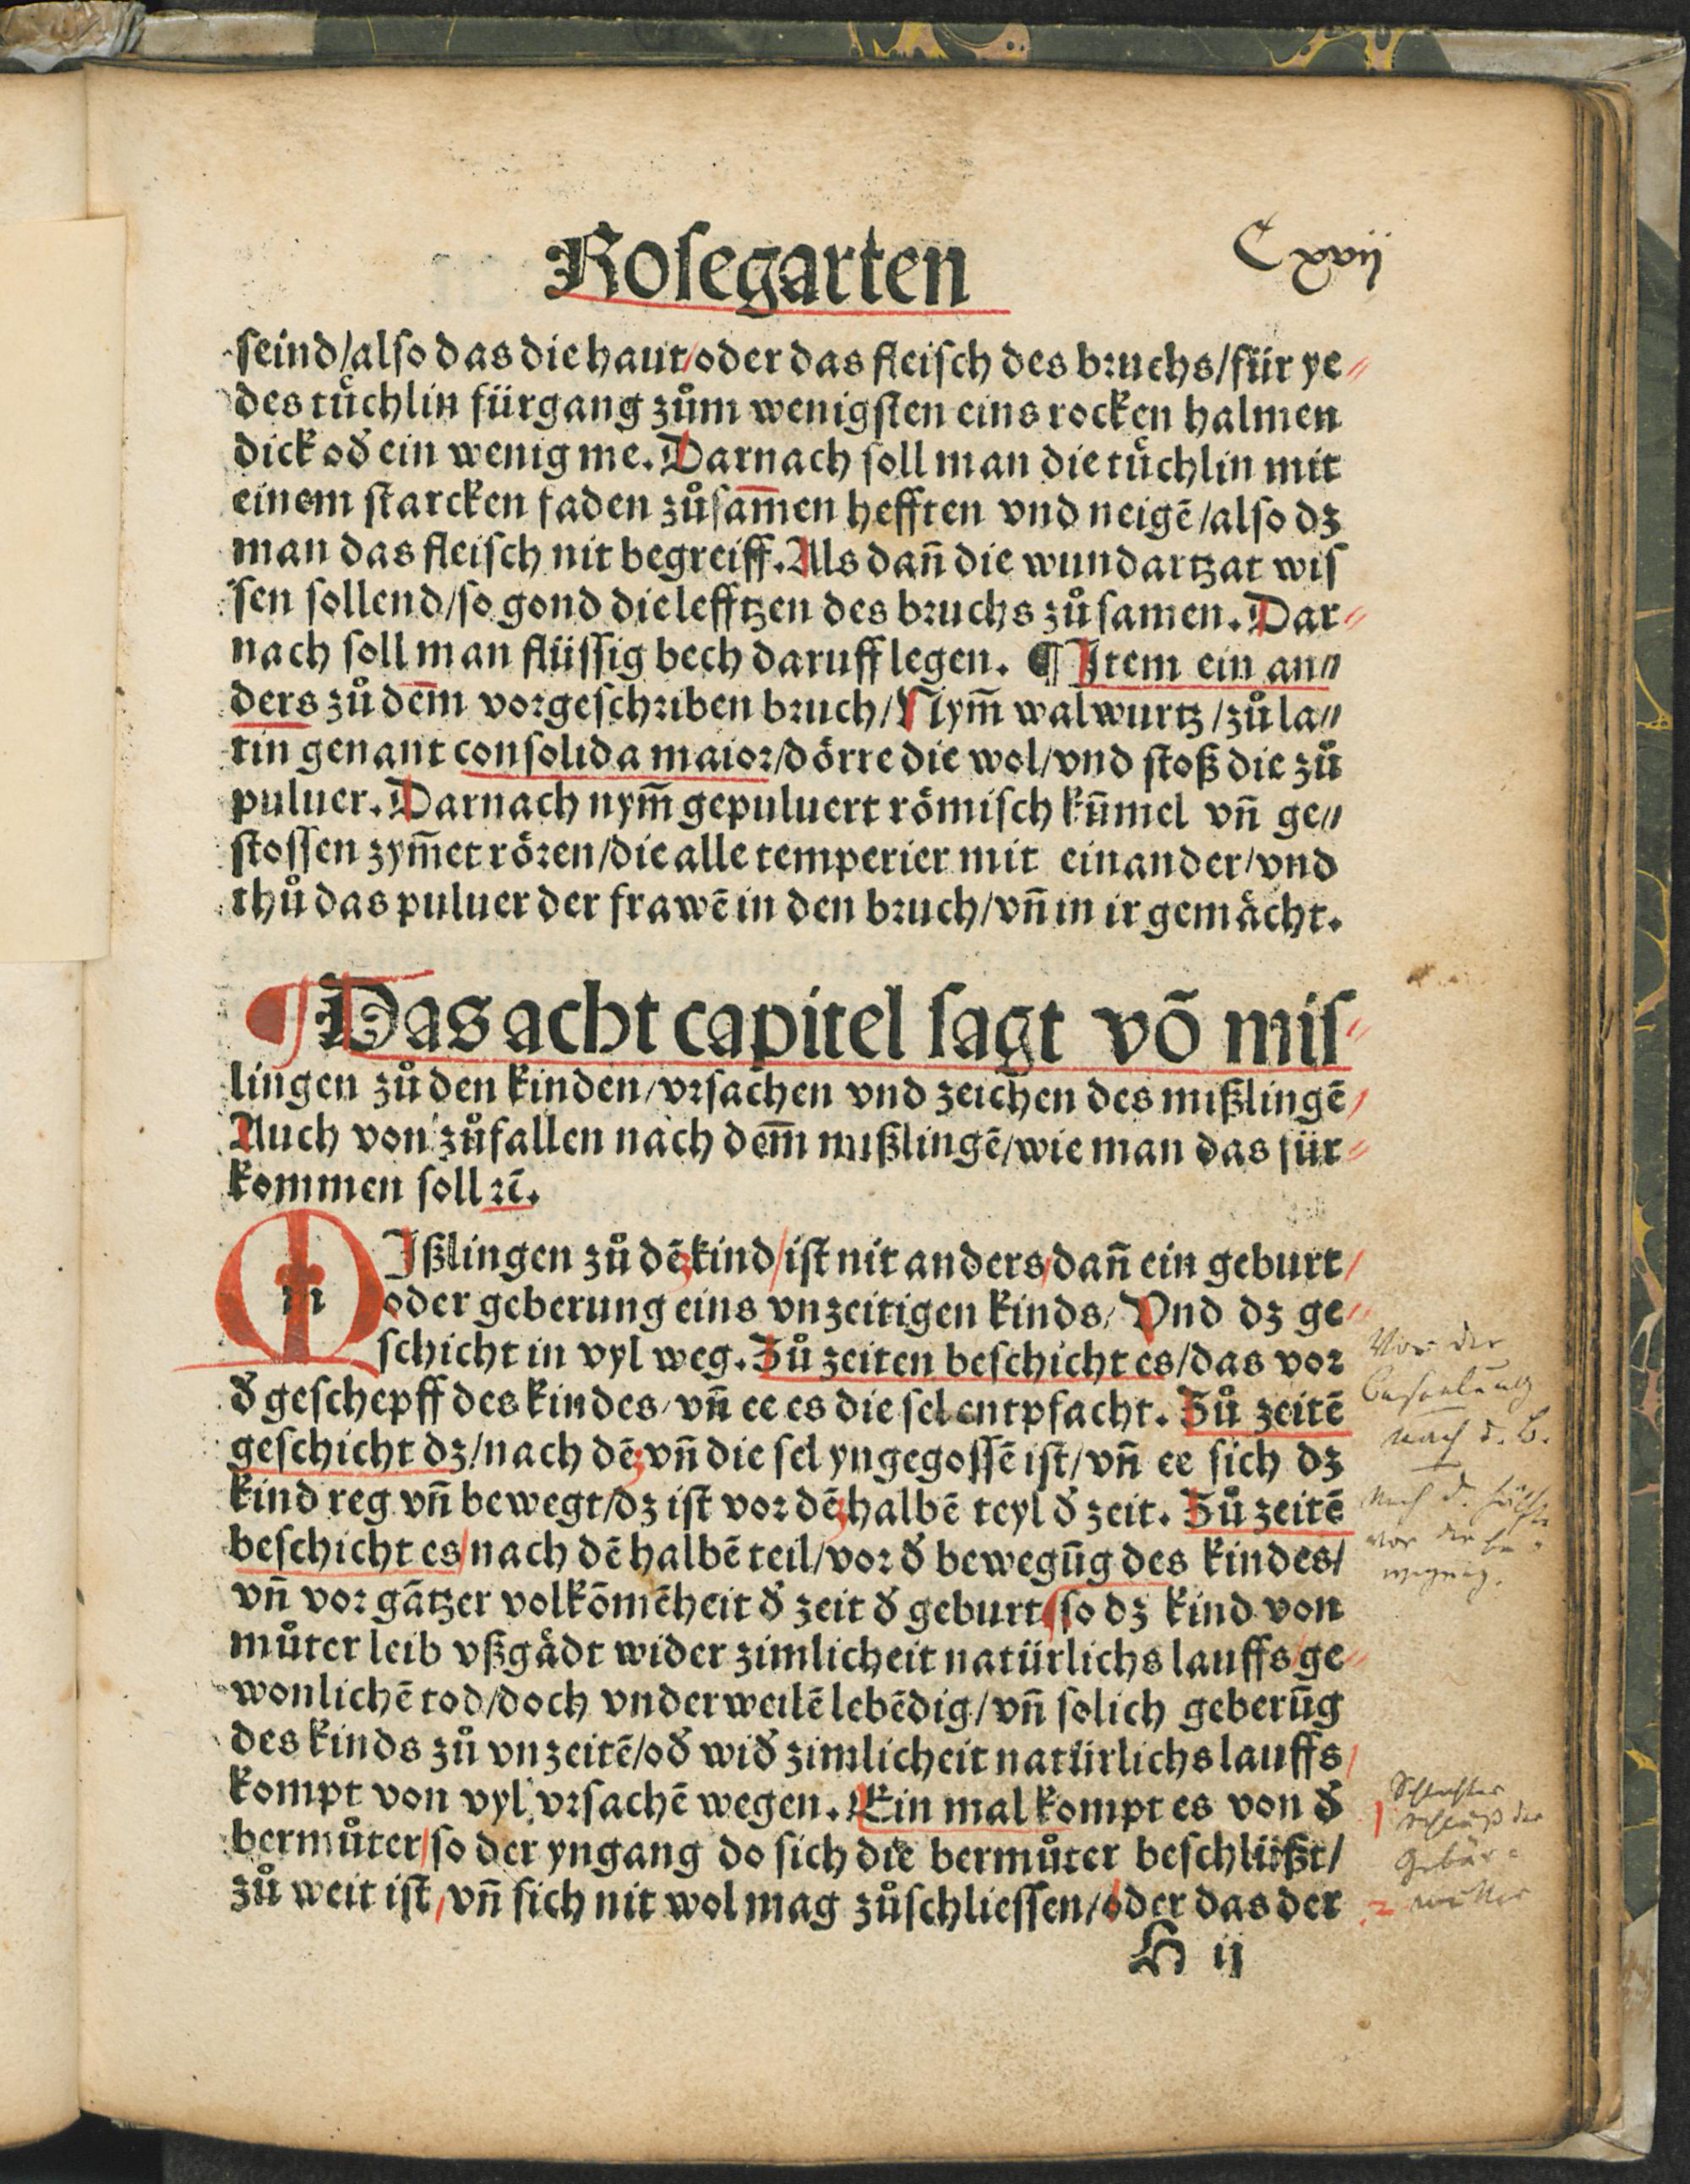 Rosegarten
Cxvij
seind/also das die haut/oder das fleisch des bruchs/für ye⸗
des tuͤchlin fürgang zům wenigsten eins rocken halmen
dick oď ein wenig me. Darnach soll man die tuͤchlin mit
einem starcken faden zůsam̄en hefften vnd neigē/also dz
man das fleisch nit begreiff. Als dañ die wundartzat wis
sen sollend/so gond die lefftzen des bruchs zů samen. Dar⸗
nach soll man flüssig bech daruff legen. ¶ Item ein an⸗
ders zů dem̄ vorgeschriben bruch/Nym̄ walwurtz/zů la⸗
tin genant consolida maior/doͤrre die wol/vnd stoß die zů
puluer. Darnach nym̄ gepuluert roͤmisch kūmel vñ ge⸗
stossen zym̄et roͤren/die alle temperier mit einander/vnd
thů das puluer der frawē in den bruch/vñ in ir gemaͤcht.
¶ Das acht capitel sagt võ mis⸗
lingen zů den kinden/vrsachen vnd zeichen des mißlingē/
Auch von zůfallen nach dem̄ mißlingē/wie man das für⸗
kommen soll ꝛc̄.
m
Ißlingen zů dē kind/ist nit anders/dañ ein geburt/
oder geberung eins vnzeitigen kinds/ Vnd dz ge⸗
schicht in vyl weg. Zů zeiten beschicht es/das vor
ď geschepff des kindes/vñ ee es die sel entpfacht. Zů zeitē
geschicht dz/nach dē vñ die sel yngegossē ist/vñ ee sich dz
kind reg vñ bewegt/dz ist vor dē halbē teyl ď zeit. Zů zeitē
beschicht es/nach dē halbē teil/vor ď bewegūg des kindes/
vñ vor gātzer volkōmēheit ď zeit ď geburt/so dz kind von
můter leib vßgaͤdt wider zimlicheit natürlichs lauffs/ge⸗
wonlichē tod/doch vnderweilē lebēdig/vñ solich geberūg
des kinds zů vnzeitē/oď wiď zimlicheit natürlichs lauffs/
kompt von vyl vrsachē wegen. Ein mal kompt es von ď
bermůter/so der yngang do sich die bermůter beschlüßt/
zů weit ist/vñ sich nit wol mag zůschliessen/oder das der
H ij
Vor der
Beseelung
nach d. B.
nach d. Hälfte
vor der Be⸗
wegung.
1 Schlechter
Schluß der
Gebär⸗
2 mutter